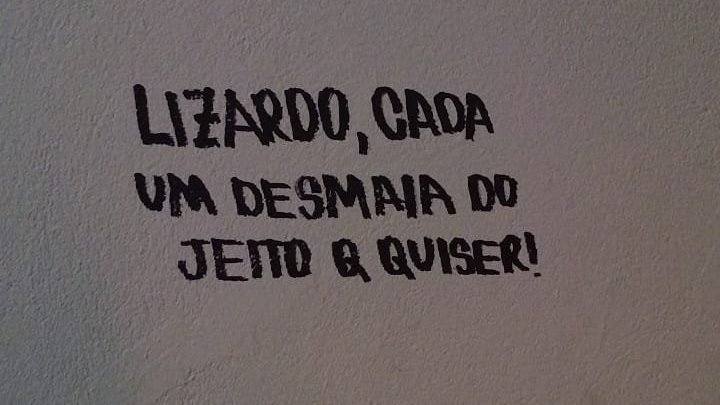 LIZARDO, CADA
UM DESMAIA DO
JEITO Q QUISER!